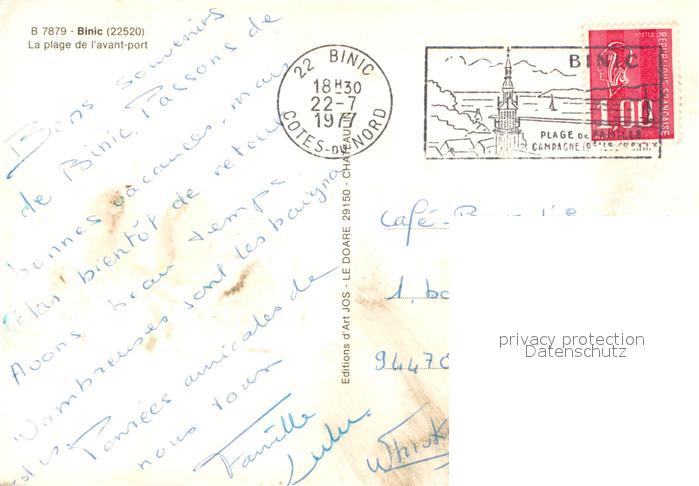 B 7879 - Binic (22520)
La plage de l'avant-port
Bons souvenirs
de Binic. Passons de
bonnes vacances mais
hélas bientôt de retour
Avons beau temps
Nombreuses sont les baignades
Pensées amicales de
nous tous
Famille
22 BINIC
18H30
22-7
1977
COTES-DU-NORD
BINIC
PLAGE DE FAMILLE
CAMPAGNE
POSTES
1,00
REPUBLIQUE FRANÇAISE
Editions d'Art JOS - LE DOARE 29150 - CHATEAULIN
Café-
1, bo
94470
privacy protection
Datenschutz